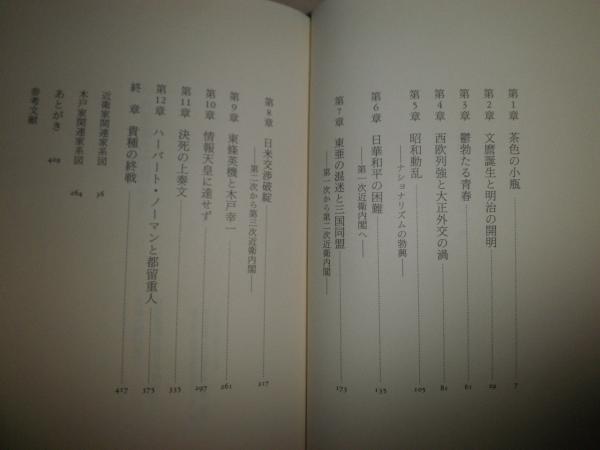 第1章 茶色の小瓶 7
第2章 文麿誕生と明治の開明 29
第3章 鬱勃たる青春 61
第4章 西欧列強と大正外交の渦 81
第5章 昭和動乱 105
――ナショナリズムの勃興――
第6章 日華和平の困難 135
――第一次近衛内閣へ――
第7章 東亜の混迷と三国同盟 173
――第一次から第二次近衛内閣――
第8章 日米交渉破綻 217
――第二次から第三次近衛内閣――
第9章 東條英機と木戸幸一 261
第10章 情報天皇に達せず 297
第11章 決死の上奏文 335
第12章 ハーバート・ノーマンと都留重人 375
終章 貴種の終戦 417
近衛家関連家系図 56
木戸家関連家系図 264
あとがき
参考文献